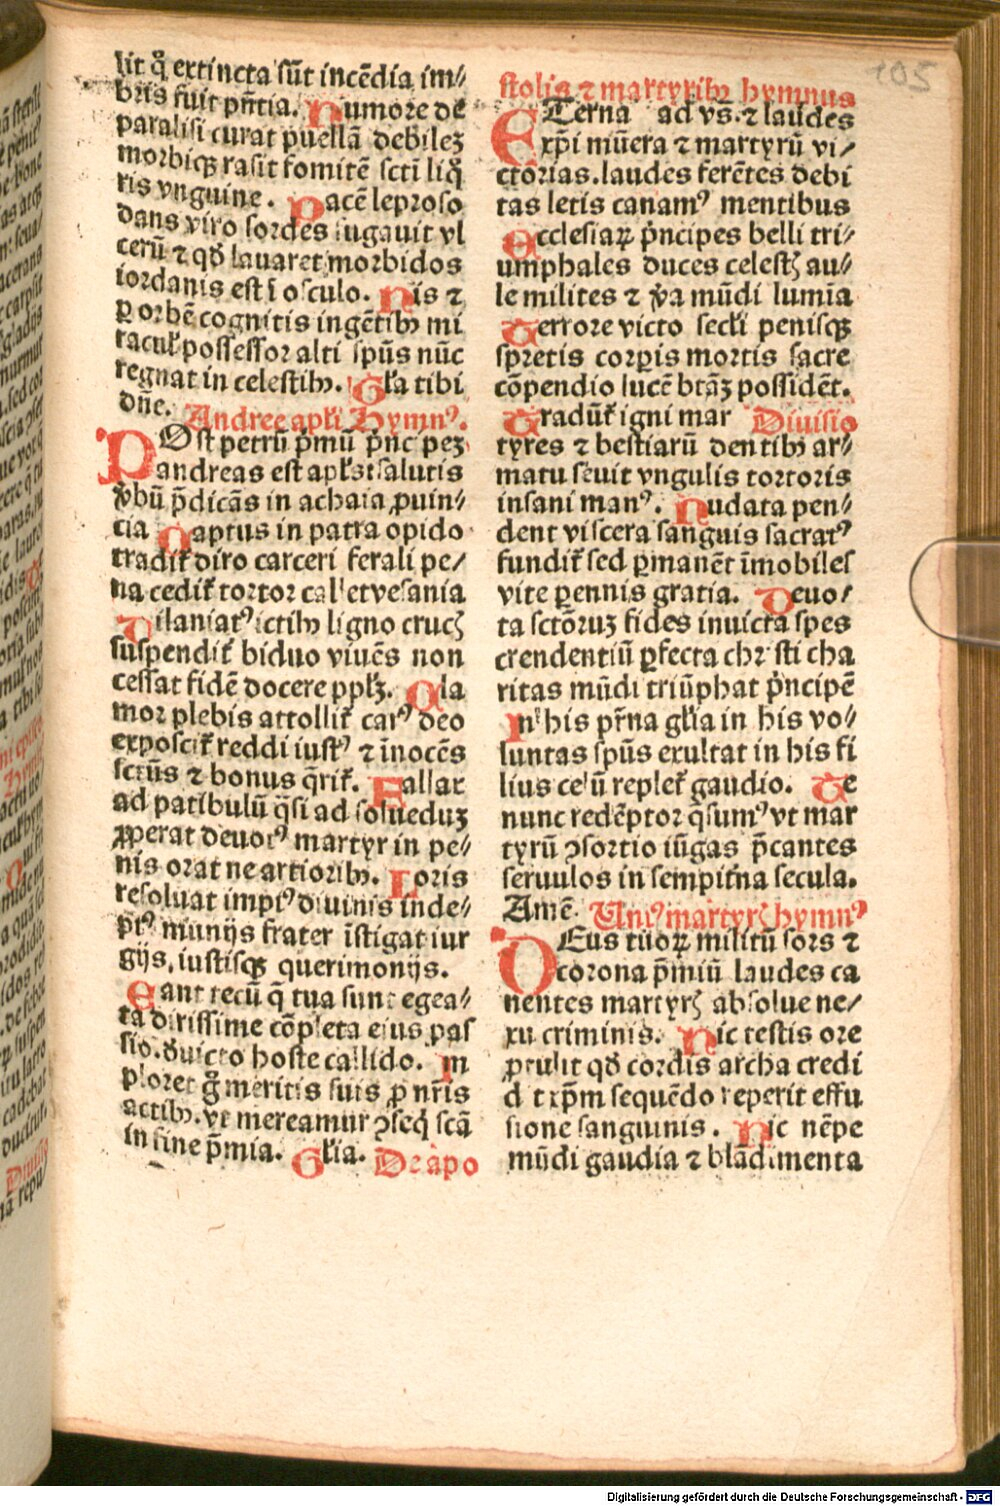 lit q̊ extincta sūt incēdia im⸗
bris fuit pn̄tia. Numore de
paralisi curat puellā debileꝫ
morbiqꝫ rasit fomitē scti liq̄
ris vnguine. Pacē leproso
dans viro sordes fugauit vl
cerū ⁊ qd̄ lauaret morbidos
iordanis est ī osculo. Nis ⁊
ꝑ orbē cognitis ingētibꝫ mi
racul̕ possessor alti spūs nūc
regnat in celestibꝫ. Gl̕a tibi
dn̄e. Andree apl̕i Hymnꝰ.
POst petrū p̄mū p̄nc peꝫ
andreas est apl̕s salutis
v̄bū p̄dicās in achaia ꝓuin⸗
cia Captus in patra opido
tradit̕ diro carceri ferali pe⸗
na cedit̕ tortor call et vesania
Dilaniatꝰ ictibꝫ ligno crucꝭ
suspendit̕ biduo viuēs non
cessat fidē docere pplꝫ. Cla
mor plebis attollit̕ carꝰ deo
exposcit̕ reddi iustꝰ ⁊ īnocēs
sctūs ⁊ bonus q̄rit̕. Fallax
ad patibulū q̄si ad solueduꝫ
ꝓperat deuotꝰ martyr in pe⸗
nis orat ne artioribꝫ. Loris
resoluat impiꝰ diuinis inde⸗
ptꝰ munijs frater īstigat iur
gijs, iustisqꝫ querimonijs.
Eant tecū q̄ tua sunt egea⸗
ta dirissime cōpleta eius pas
sio. deuicto hoste callido. Im
ploret g̊ meritis suis ꝓ nr̄is
actibꝫ. vt mereamur ꝯseq̄ scā
in fine p̄mia. Gl̕ia. De apo
stolis ⁊ martyribꝫ hymnus
ETerna ad vs̄. ⁊ laudes
xp̄i mūera ⁊ martyrū vi⸗
ctorias. laudes ferētes debi
tas letis canamꝰ mentibus
Ecclesiaꝝ p̄ncipes belli tri⸗
umphales duces celestꝭ au⸗
le milites ⁊ v̄a mūdi lumīa
Terrore victo secl̕i penisqꝫ
spretis corꝑis mortis sacre
cōpendio lucē btāꝫ possidēt.
Tradūt̕ igni mar Diuisio
tyres ⁊ bestiarū dentibꝫ ar⸗
matu seuit vngulis tortoris
insani manꝰ. Nudata pen⸗
dent viscera sanguis sacratꝰ
fundit̕ sed ꝑmanēt īmobiles
vite ꝑennis gratia. Deuo⸗
ta sctōruꝫ fides inuicta spes
crendentiū ꝑfecta christi cha
ritas mūdi triūphat p̄ncipē
In his pr̄na gl̕ia in his vo⸗
luntas spūs exultat in his fi
lius celū replet̕ gaudio. Te
nunc redēptor q̄sumꝰ vt mar
tyrū ꝯsortio iūgas p̄cantes
seruulos in sempit̄na secula.
Amē. Uniꝰ martyrꝭ hymnꝰ
DEus tuoꝝ militū sors ⁊
corona p̄miū laudes ca
nentes martyrꝭ absolue ne⸗
xu criminis. Hic testis ore
ꝓtulit qd̄ cordis archa credi
dit xp̄m sequēdo reperit effu
sione sanguinis. Hic nēpe
mūdi gaudia ⁊ blādimenta
105
Digitalisierung gefördert durch die Deutsche Forschungsgemeinschaft - DFG